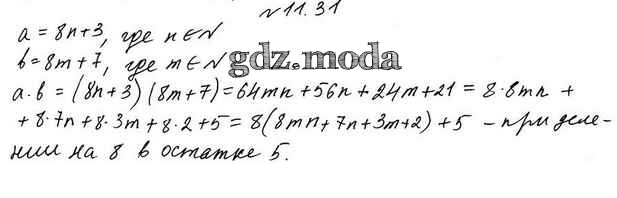 №11.31
a = 8n+3, где n∈N
b=8m+7, где m∈N
gdz.moda
a·b = (8n+3)(8m+7)=64mn+56n+24m+21 = 8·8mn +
+8·7n+8·3m+8·2+5 = 8(8mn+7n+3m+2)+5 – при деле-
нии на 8 в остатке 5.